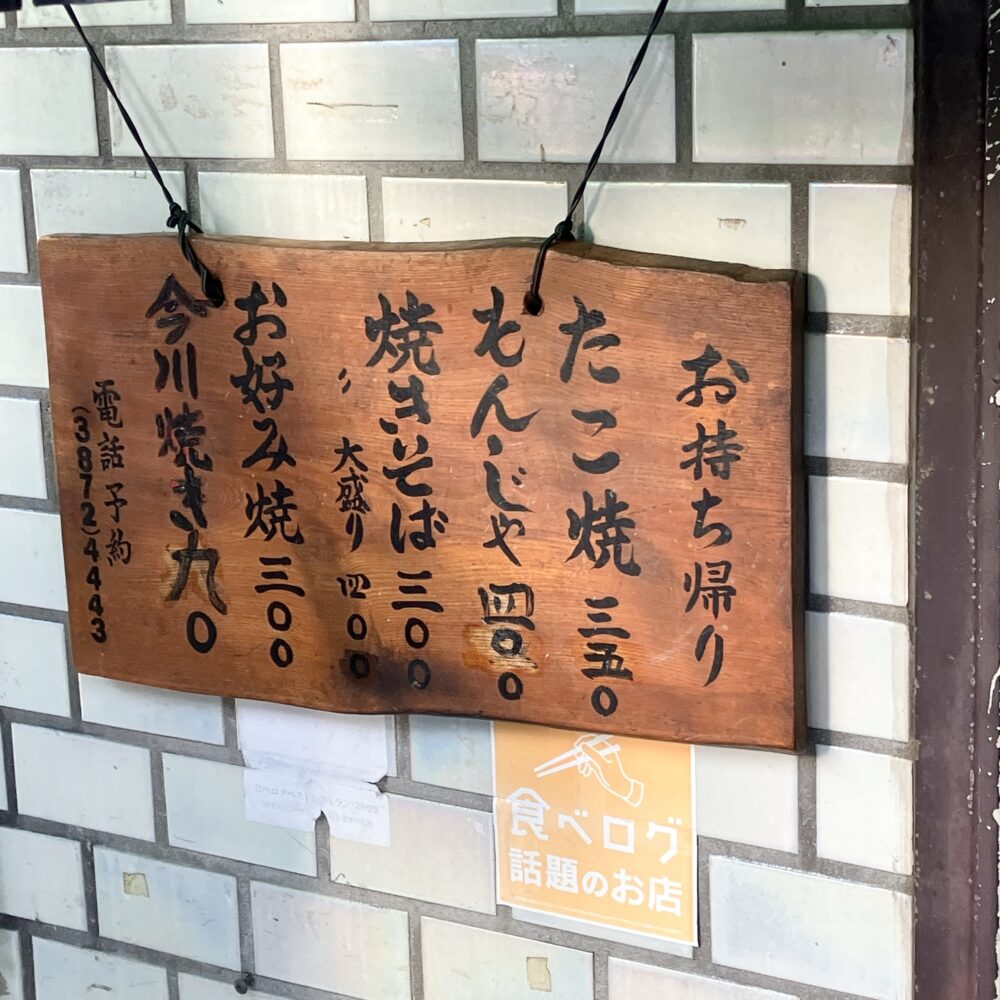 お持ち帰り
たこ焼 三五〇
もんじゃ 四〇〇
焼きそば 三〇〇
〃 大盛り 四〇〇
お好み焼 三〇〇
今川焼き 九〇
電話予約
(3872)4443
食べログ
話題のお店
食べログベスト
2009